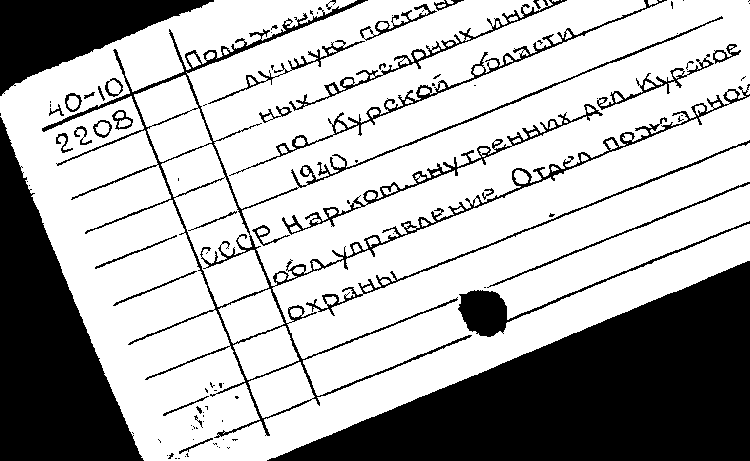 40-10
2208
Положение
лучшую
ных пожарных
по Курской области.
1940.
СССР. Нар.ком. внутренних дел. Курское
обл управление. Отдел пожарной
охраны